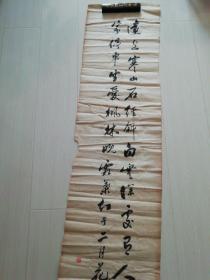 遠上寒山石径斜白雲深處有人
家停車坐愛枫林晚霜葉红于二月花